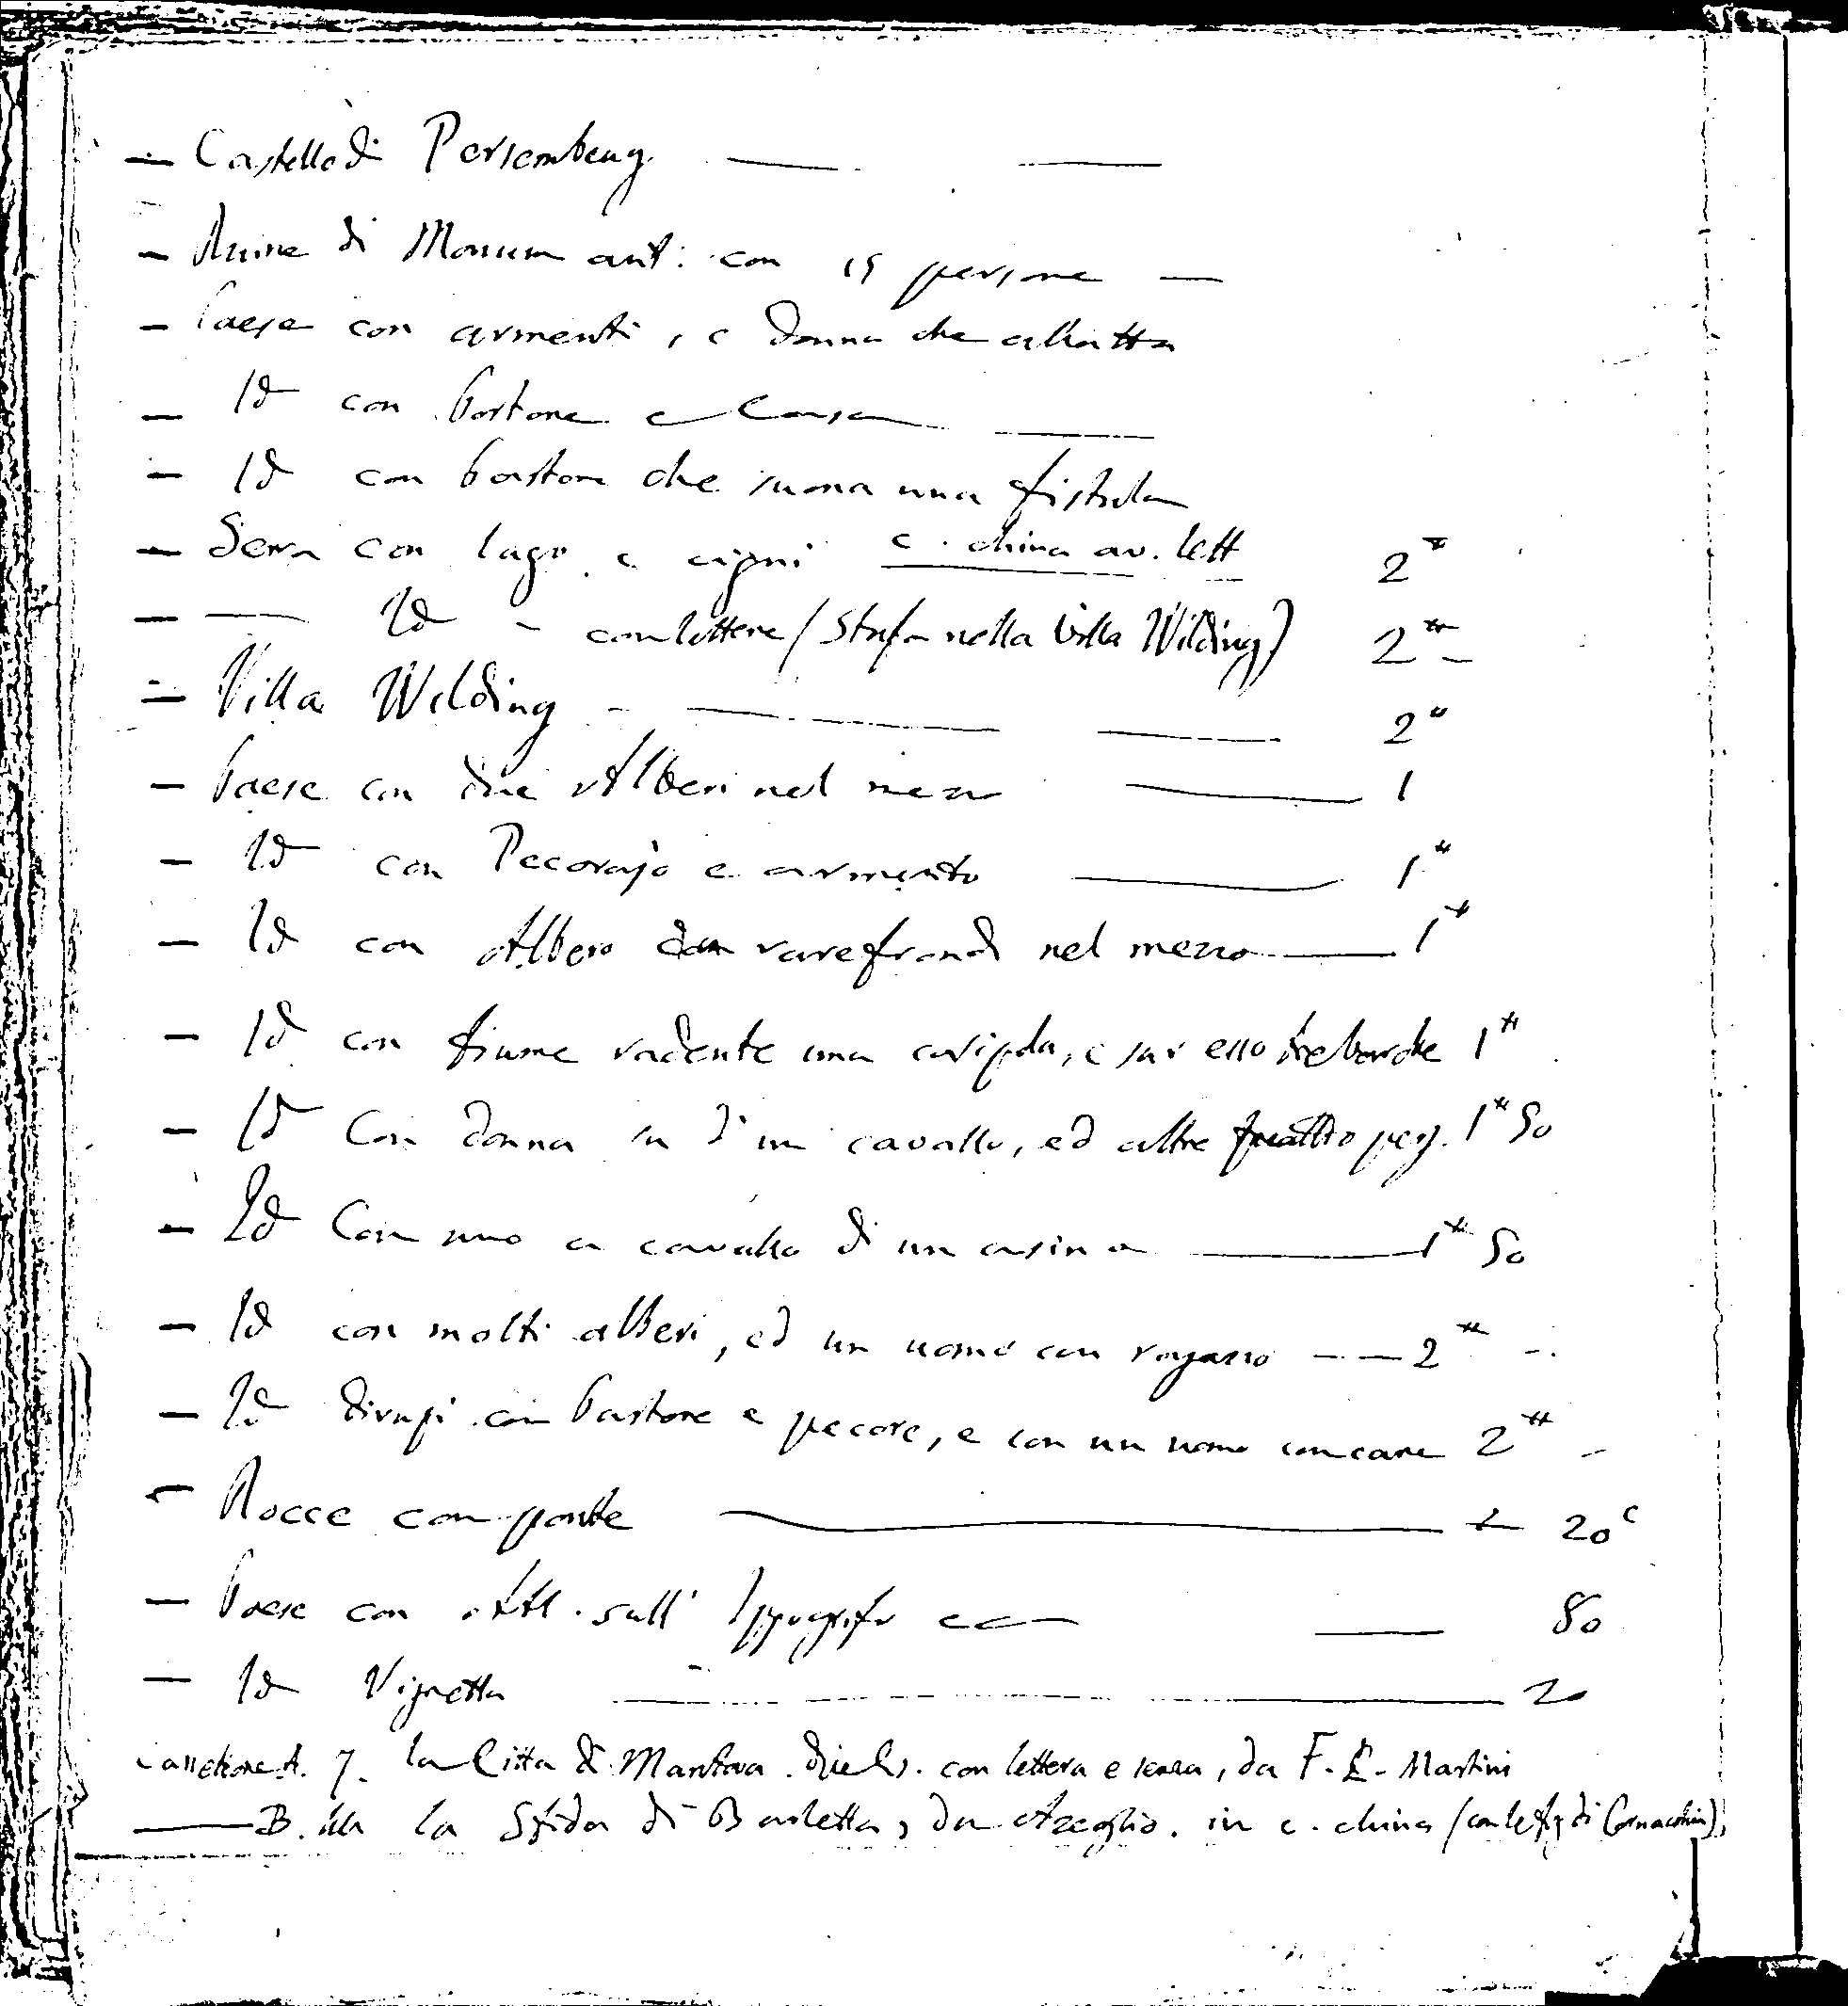 — Castello di Persembeug — —
— Ruine di Monum ant: con 15 persone —
— Paese con armenti, e donna che allatta
— Id con Pastore e Casa —
— Id con Pastore che suona una fistula
— Serra con lago e cigni c. china av. lett 2"
— — Id - con lettere (Stufa nella Villa Wilding) 2" -
— Villa Wilding - — — 2"
— Paese con due Alberi nel mezzo — 1
— Id con Pecorajo e armento — 1"
— Id con Albero con rare frondi nel mezzo — 1"
— Id con fiume radente una casipola, e sur esso tre barche 1"
— Id Con donna su d'un cavallo, ed altre quattro pers. 1" 50
— Id Con uno a cavallo di un asino — 1" 50
— Id con molti alberi, ed un uomo con ragazzo — 2" -
— Id dirupi con Pastore e pecore, e con un uomo con cane 2" -
— Rocce con ponte — 20c
— Paese con Att. sull' Ippogrifo — 80
— Id Vignetta — 20
Cassettone A. 7. la Citta di Mantova. con lettera e senza, da F. L. Martini
— B. la Sfida di Barletta, da Azeglio. in c. china (con di Cornacchia)